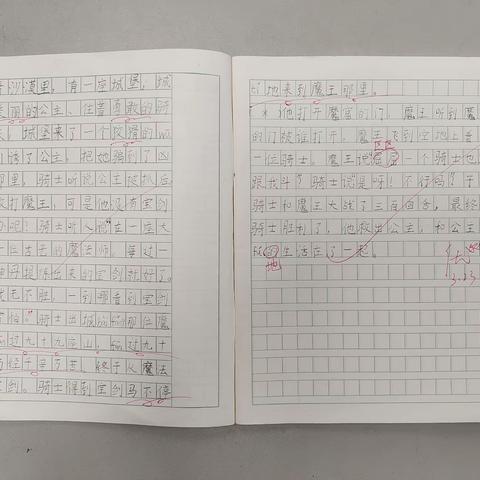 沙漠里,有一座城堡,城
丽的公主,住着勇敢的骑
城堡来了一个狡猾的w
诱了公主,把她骗到了凶
那里。骑士听说公主被抓后
打魔王,可是他没有宝剑
办呢?骑士听人说在一座大
一位古老的魔法师,每过一
来的宝剑就好了。
无不胜,一到哪看到宝剑
骑士出城 那位魔
过九十九座山, 过九十
经千辛万苦,终于从魔法
剑。骑士得到宝剑马不停
tí地来到魔王那里。
他打开魔宫的门,魔王听到魔
的门被谁打开,魔王飞到空地上看
一位骑士。魔王说 一个骑士也
跟我斗?骑士说"是呀!不行吗?于
骑士和魔王大战了三百回合,最终
骑士胜利了,他救出公主,和公主
的生活在了一起。
地
优
3.23